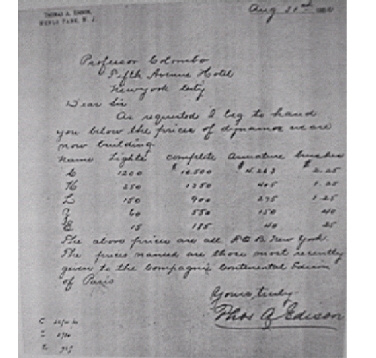 THOMAS A. EDISON,
MENLO PARK, N. J.
Aug
Professor Colombo
Fifth Avenue Hotel
New york City
Dear Sir
As requested I beg to hand
you below the prices of dynamos we are
now building.
Name Lights complete Armature brushes
C 1200 $ 10,500 $ 2.25
K 250 1350 405 1.25
L 150 900 275 1.25
Z 60 550 150 40
E 15 185 40 25
The above prices are all New York.
The prices named are those most recently
given to the Compagnie Continental Edison
of Paris
Yours truly
Thos A Edison